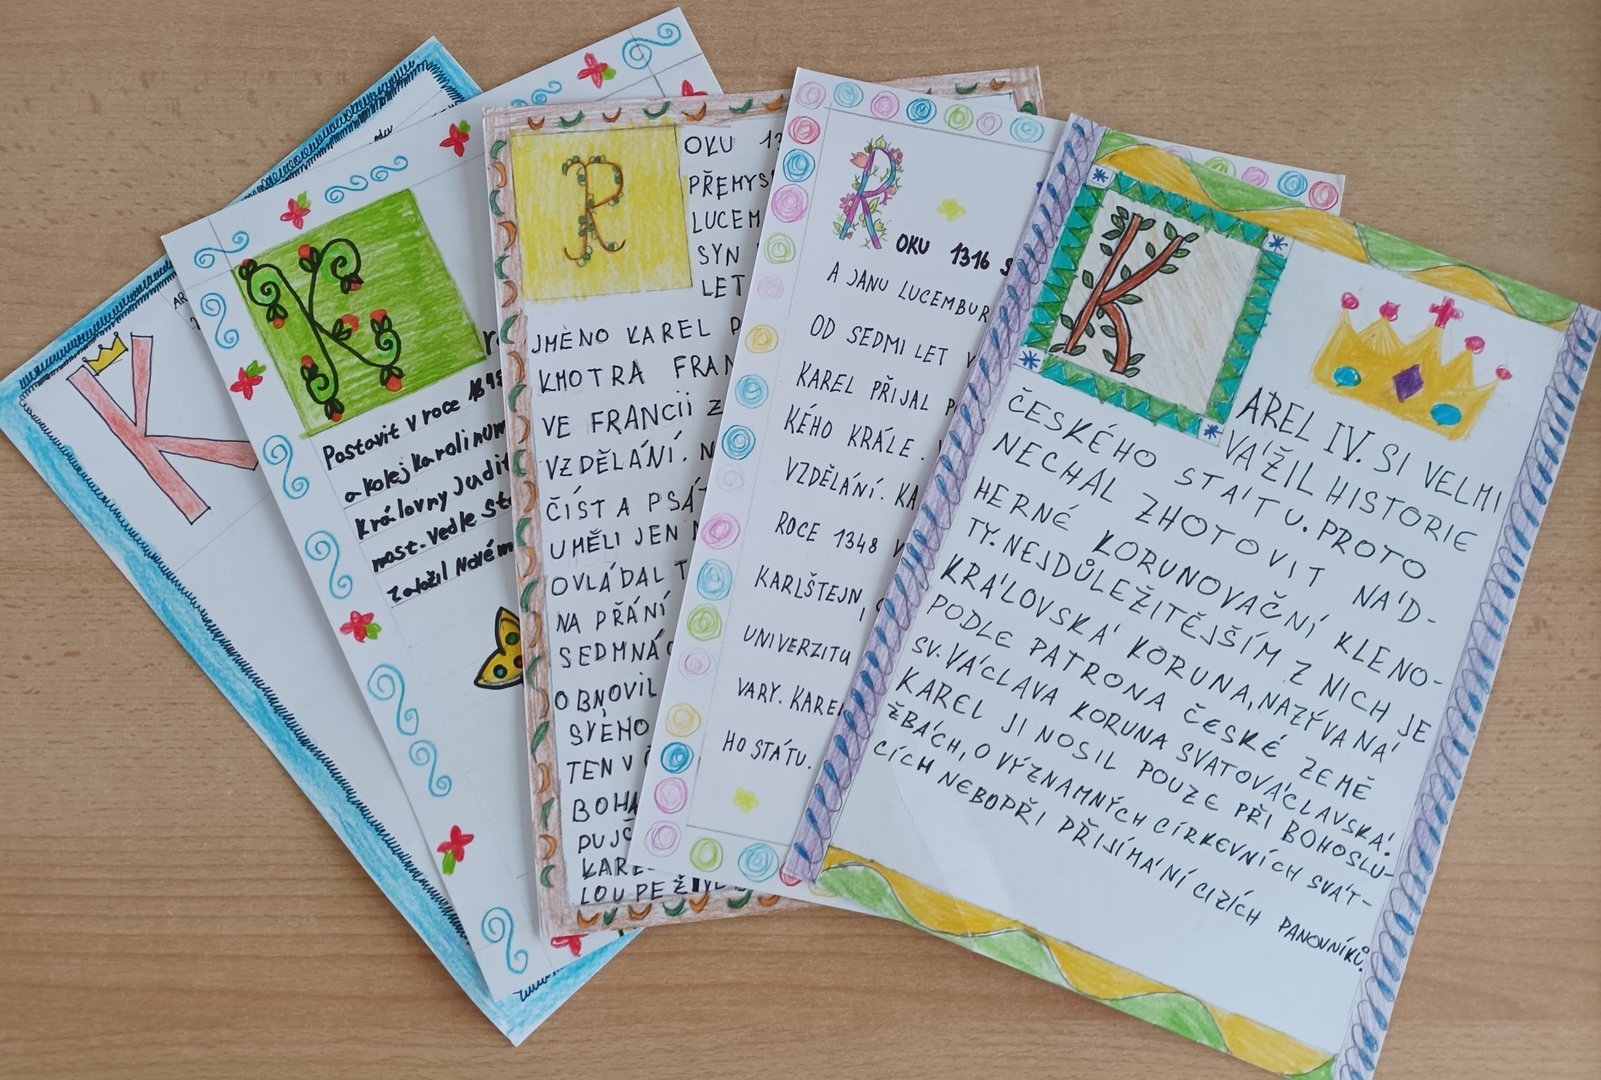 K
K
Postavit v roce
a kolej Karolinum
Královny Judit
most. Vedle
Založil Nové m
R
OKU
PŘEMYS
LUCEM
SYN
LET
JMÉNO KAREL P
KMOTRA FRAN
VE FRANCII Z
VZDĚLÁNÍ. N
ČÍST A PSÁT
UMĚLI JEN
OVLÁDAL T
NA PŘÁNÍ
SEDMNÁC
OBNOVIL
SVÉHO
TEN V
BOHA
PUJČ
KARE
LOUPEŽIVÉ
R
OKU 1316 S
A JANU LUCEMBUR
OD SEDMI LET V
KAREL PŘIJAL P
KÉHO KRÁLE.
VZDĚLÁNÍ. KA
ROCE 1348 V
KARLŠTEJN,
UNIVERZITU
VARY. KAREL
HO STÁTU.
K
AREL IV. SI VELMI
VÁŽIL HISTORIE
ČESKÉHO STÁTU. PROTO
NECHAL ZHOTOVIT NÁD-
HERNÉ KORUNOVAČNÍ KLENO-
TY. NEJDŮLEŽITĚJŠÍM Z NICH JE
KRÁLOVSKÁ KORUNA, NAZÝVANÁ
PODLE PATRONA ČESKÉ ZEMĚ
SV. VÁCLAVA KORUNA SVATOVÁCLAVSKÁ.
KAREL JI NOSIL POUZE PŘI BOHOSLU-
ŽBÁCH, O VÝZNAMNÝCH CÍRKEVNÍCH SVÁT-
CÍCH NEBOPŘI PŘIJÍMÁNÍ CIZÍCH PANOVNÍKŮ.